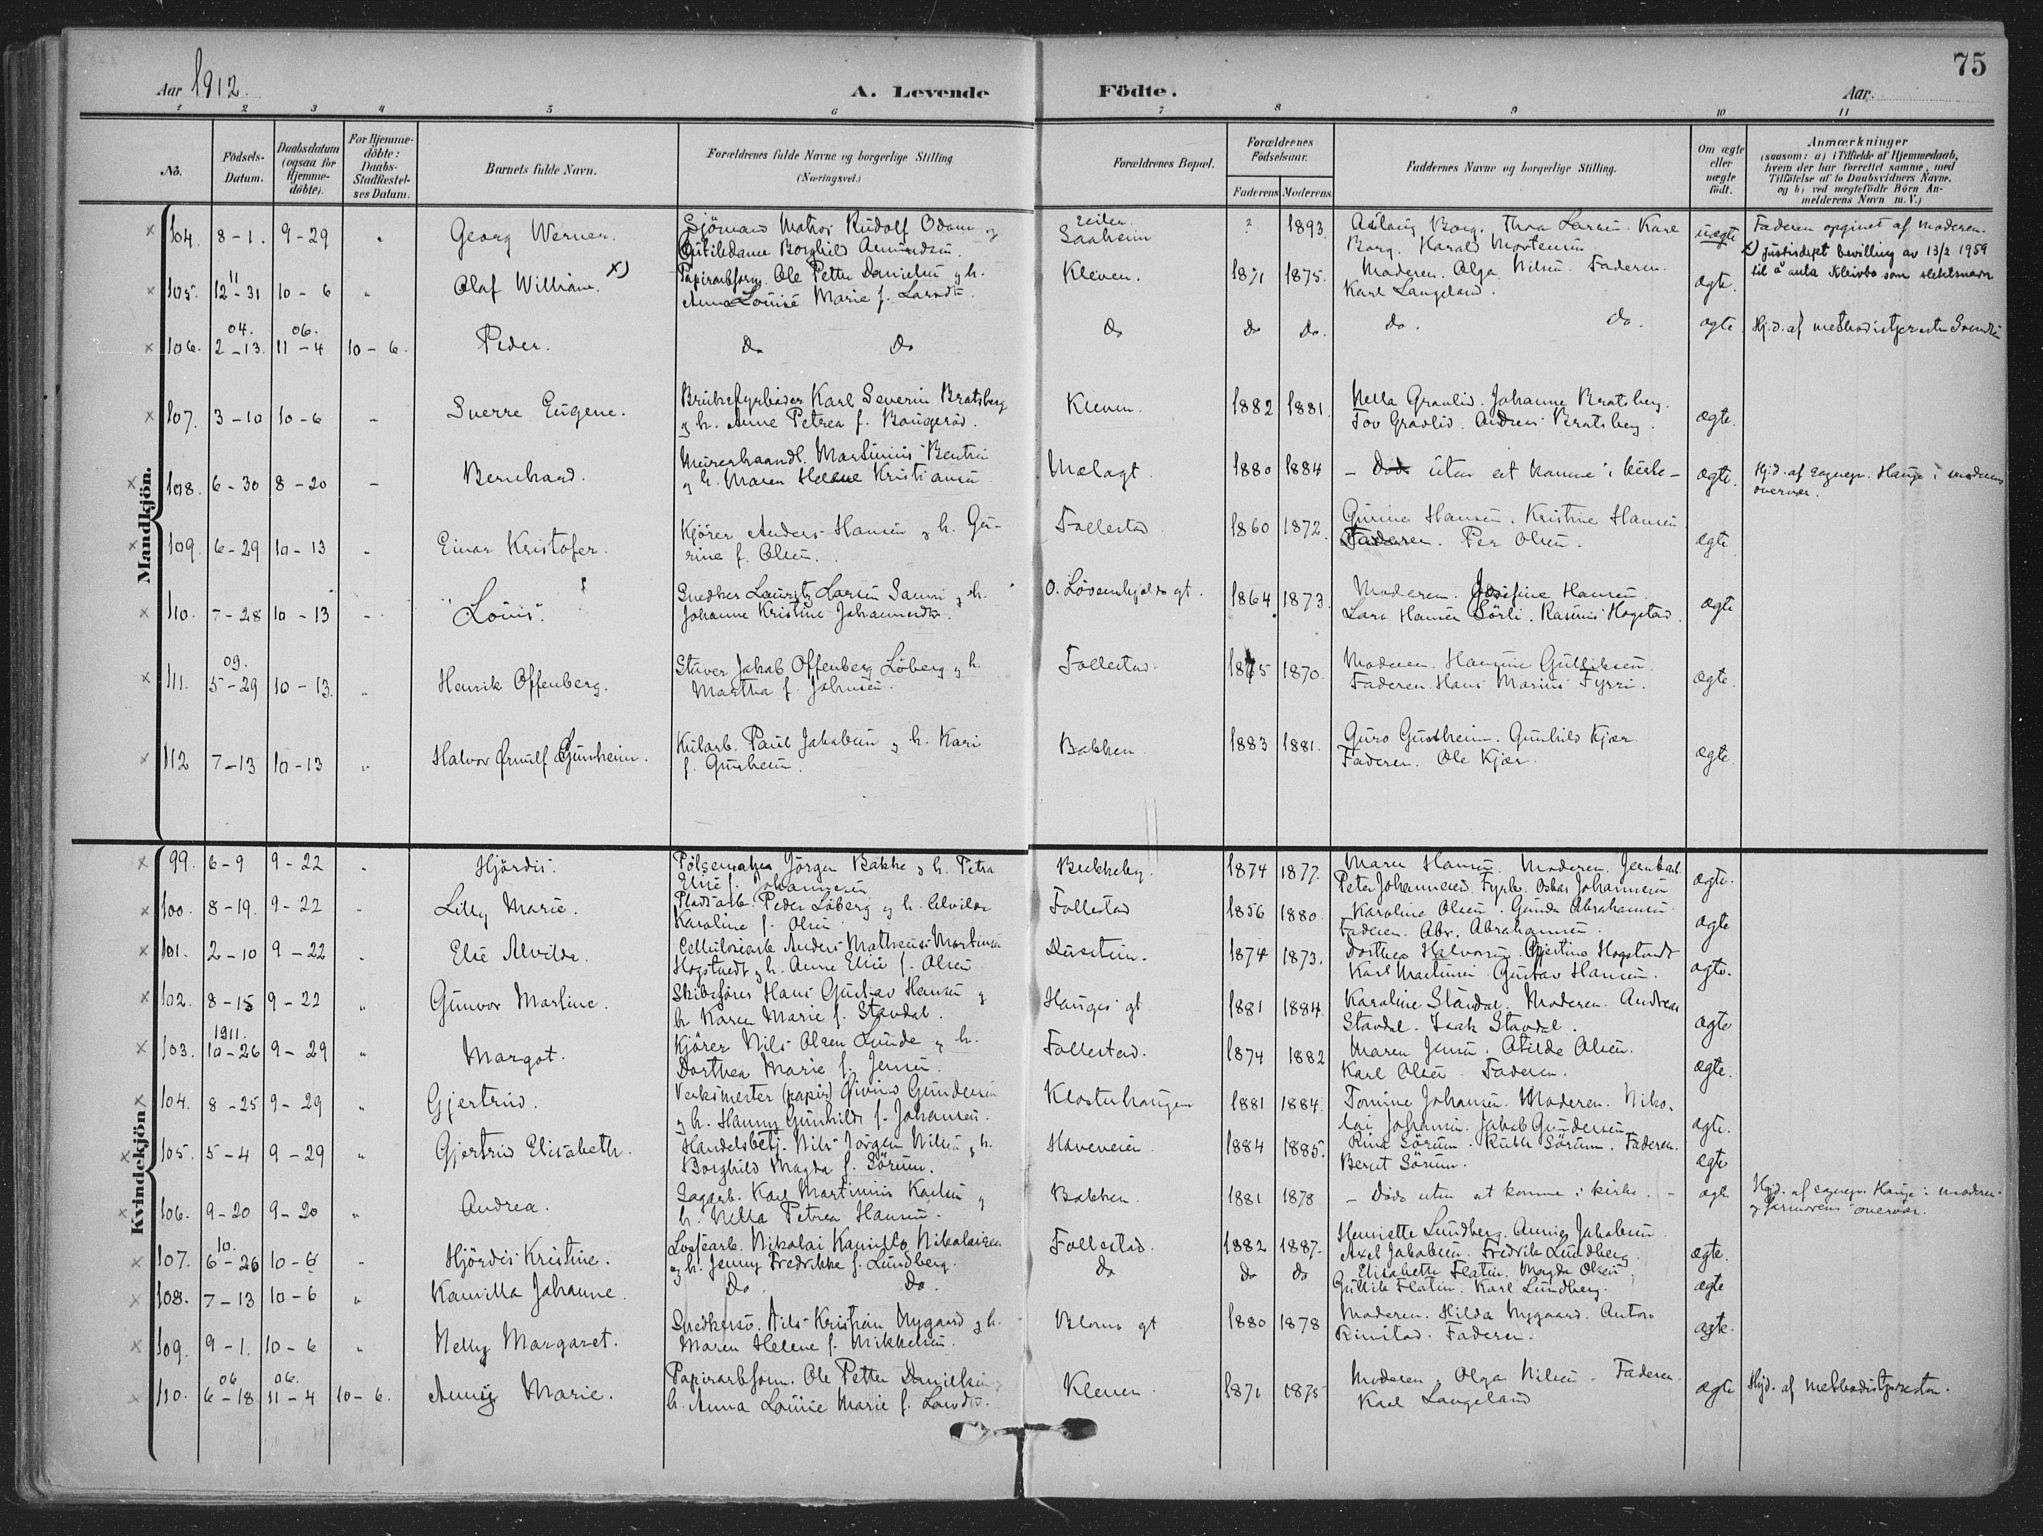 75
Aar 1912.
A. Levende Födte.
Aar
1 2 3 4 5 6 7 8 9 10 11
No.
Födsels-Datum.
Daabsdatum (ogsaa for Hjemmedöbte).
For Hjemmedöbte: Daabs-Stadfæstelses Datum.
Barnets fulde Navn.
Forældrenes fulde Navne og borgerlige Stilling (Næringsvei.)
Forældrenes Bopæl.
Forældrenes Födselsaar.
Faderens Moderens
Faddernes Navne og borgerlige Stilling.
Om ægte eller uægte födt.
Anmærkninger
(saasom: a) i Tilfælde af Hjemmedaab,
hvem der har forrettet samme, med
Tilföielse af to Daabsvidners Navne,
og b) ved uægtefödte Börn Anmelderens Navn m. V.)
Mandkjön.
104. 8-1. 9-29 " Georg Werner. Sjömand Rudolf og
Borghild Amundsen. Saaheim ? 1893. Aslaug Borg. Thea Larsen. Karl
Borg. Harald Mortensen uægte Faderen opgivet af moderen.
x) Justisdept bevilling av 13/2 1959
til å anta Kleivbo som slektsnavn
105. 11 12-31 10-6 " Olaf William. x) Papirarbform. Ole Petter Danielsen og h.
Anna Louise Marie f. Larsdtr. Kleven. 1871 1875. Moderen. Olga Nilsen. Faderen.
Karl Langeland. ægte.
106. 04. 2-13. 06. 11-4 10-6. Peder. Do Do do do do. do. do. ægte Hj.d. af methodistprest
107. 3-10 10-6 " Sverre Eugene. Karl Severin Bratsberg
og h. Anne Petrea f. Kleven. 1882 1881. Nella Gravlid. Johanne Bratsberg.
Tov Gravlid. Andreas Bratsberg. ægte.
108. 6-30 8-20 " Bernhard. Murerhaandl. Martinius Bentsen
og h. Maren Helene Kristiansen 1880 1884 – Död uten at komme i kirke – ægte. Hj.d. af sognepr. Hauge i moderens
overvær.
109. 6-29 10-13 " Einar Kristofer. Kjörer Anders Hansen og h. Gu-
rine f. Olsen. Follestad 1860 1872. Gurine Hansen. Kristine Hansen
Faderen. Per Olsen. ægte
110. 7-28 10-13 " "Louis". Snedker Lauritz Larsen og h.
Johanne Kristine Johannesdtr. O. Lövenskjolds gt. 1864 1873. Moderen. Josefine Hansen.
Lars Hansen Sörli. Rasmus Hogstad. ægte
111. 09. 5-29 10-13. " Henrik Offenberg. Stuver Jakob Offenberg Löberg og h.
Martha f. Johnsen. Follestad. 1875 1870. Moderen. Hansine Gulliksen.
Faderen. Hans Marius Fyrri. ægte.
112 7-13 10-13 " Halvor Ørnulf Gunheim. Paul Jakobsen og h. Kari
f. Gunheim. Bakken. 1883 1881. Guro Gunheim. Gunhild Kjær.
Faderen. Ole Kjær. ægte.
Kvindekjön
99. 6-9 9-22 " Hjördis. Pölsemaker Jörgen Bakke og h. Petra
Elise f. Johannesen Bukkeby. 1874 1877. Maren Hansen. Moderen.
Peter Johannesen. Fyrb. Oskar Johannesen ægte.
100. 8-19. 9-22 " Lilly Marie. Pladsarb. Peder Löberg og h. Alvilde
Karoline f. Olsen Follestad 1856 1880. Karoline Olsen. Gunda Abrahamsen.
Faderen. Abr. Abrahamsen. ægte
101. 2-10 9-22 " Elise Alvilda. Cellulosearb. Anders Matheus Martinsen
Hogstvedt og h. Anne Elise f. Olsen. 1874 1873. Dorthea Halvorsen. Hogstvedt
Karl Martinsen Gustav Hansen. ægte.
102. 8-15 9-22 " Gunvor Martine. Skibsförer Hans Gustav Hansen og
h. Karen Marie f. Stavdal. Hauges gt 1881 1884. Karoline Stavdal. Moderen. Andreas
Stavdal. Isak Stavdal. ægte
103. 1911. 10-26 9-29 " Margot. Kjörer Nils Olsen Lunde og h.
Dorthea Marie f. Jensen. Follestad. 1874 1882 Maren Jensen. Atilde Olsen.
Karl Olsen. Faderen. ægte.
104. 8-25 9-29 " Gjertrud. Verksmester (papir) Öivind Gundersen
og h. Hanny Gunhilde f. Johansen. Klosterhaugen 1881 1884. Tomine Johansen. Moderen. Niko-
lai Johansen. Jakob Gundersen ægte.
105. 5-4 9-29 " Gjertrud Elisabeth. Handelsbetj. Nils Jörgen Nilsen og h.
Borghild Magda f. Sörum. Haveveien 1884 1885. Rina Sörum. Ruth Sörum. Faderen.
Bernt Sörum. ægte
106. 9-20 9-20 " Andrea. Sagarb. Karl Martinius Karlsen og
h. Nella Petrea Hansen. Bakken. 1881 1878 – Död uten at komme i kirke. – ægte Hj.d. af sognepr. Hauge i moderens
og farmorens overvær.
107. 10. 6-26 10-6 " Hjördis Kristine. Lossearb. Nikolai Kamillo Nikolaisen
og h. Jenny Fredrikke f. Lundberg. Follestad. 1882 1887. Henriette Lundberg. Annie Jakobsen.
Axel Jakobsen. Fredrik Lundberg. ægte.
108. 7-13 10-6 " Kamilla Johanne. Do. Do. do do do Elisabeth Flatin. Magda Olsen.
Gullik Flatin. Karl Lundberg. ægte
109. 9-1. 10-6 " Nelly Margaret. Snedkersv. Nils Kristian Nygaard og h.
Maren Helene f. Mikkelsen. Bloms gt 1880 1878 Moderen. Hilda Nygaard. Anton
Rimstad. Faderen. ægte.
110. 06 6-18 06. 11-4 10-6. Annie Marie. Papirarbform. Ole Petter Danielsen og
h. Anna Louise Marie f. Larsdtr. Kleven. 1871 1875 Moderen. Olga Nilsen. Faderen.
Karl Langeland ægte Hjd. af Methodistpresten.